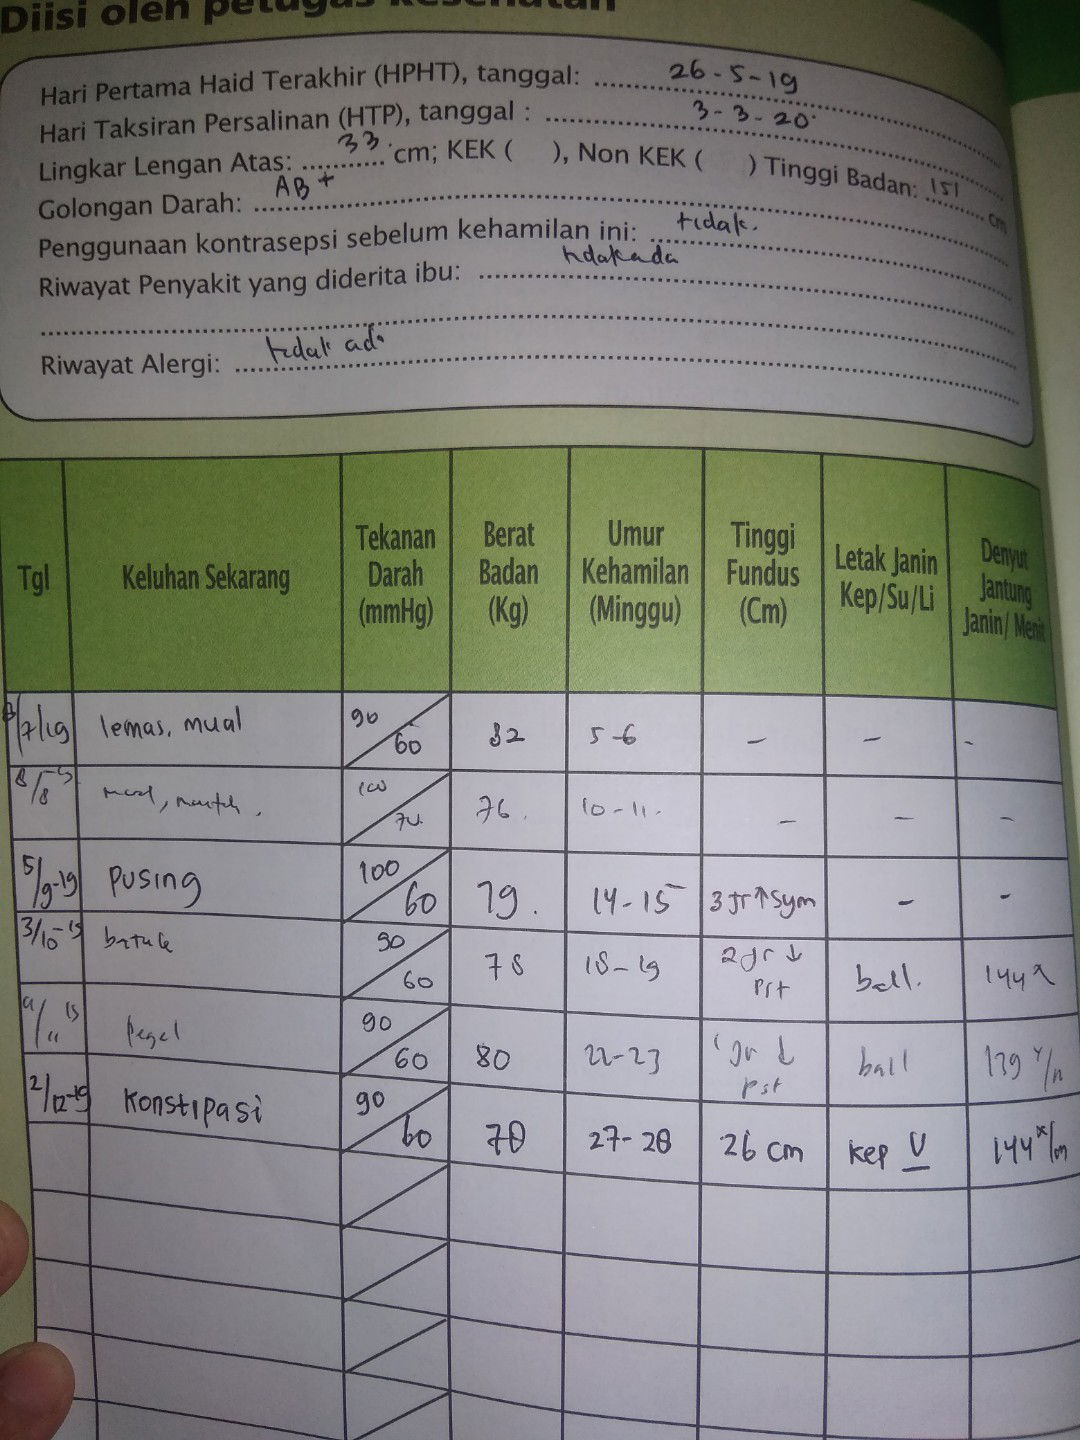 Diisi oleh petugas kesehatan
Hari Pertama Haid Terakhir (HPHT), tanggal: 26-5-19
Hari Taksiran Persalinan (HTP), tanggal : 3-3-20
Lingkar Lengan Atas: 33 cm; KEK ( ), Non KEK ( ) Tinggi Badan: 151 cm
Golongan Darah: AB +
Penggunaan kontrasepsi sebelum kehamilan ini: tidak.
Riwayat Penyakit yang diderita ibu: tidak ada
Riwayat Alergi: tidak ada
Tgl Keluhan Sekarang Tekanan Darah (mmHg) Berat Badan (Kg) Umur Kehamilan (Minggu) Tinggi Fundus (Cm) Letak Janin Kep/Su/Li Denyut Jantung Janin/ Menit
/7/19 lemas, mual 90/60 82 5-6 - - -
8/8 76. 10-11. - - -
5/9-19 pusing 100/60 79. 14-15 3 Jr↑Sym - -
3/10 batuk 90/60 78 18-19 2 Jr ↓ Pst ball. 144 x
pegel 90/60 80 22-23 Jr ↓ pst ball 139 x/m
2/12-19 Konstipasi 90/60 78 27-28 26 cm kep U 144 x/m